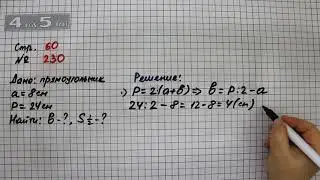 4 на 5.ru
Стр. 60
№ 230
Дано: прямоугольник
a = 8см
P = 24см
Найти: b - ?, S ½ - ?
Решение:
1) P = 2(a+b) ⇒ b = P:2-a
24:2-8 = 12-8 = 4(см)